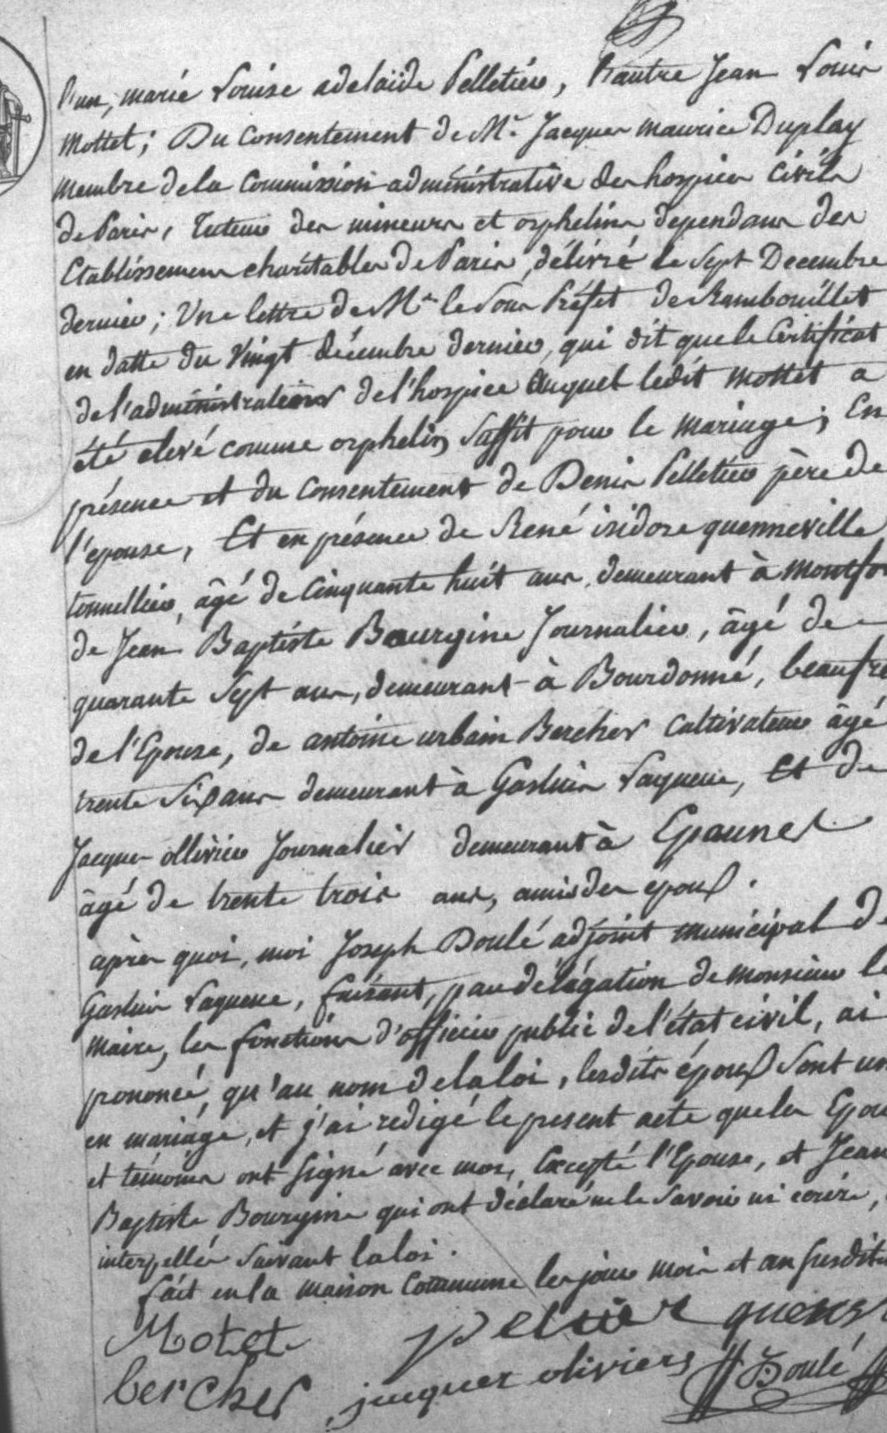 l'un, marie Louise adelaïde Pelletier, l'autre Jean Louis
Mottet; Du Consentement de Mr. Jacques maurice Duplay
membre de la Commission administrative des hospices Civils
de Paris, Tuteur des mineurs et orphelins dependans des
Etablissemens charitables de Paris, délivré le Sept Decembre
dernier; Une lettre de Mr. le Sous Préfet de Rambouillet
en datte du Vingt décembre dernier, qui dit que le Certificat
de l'administrateur de l'hospice auquel ledit mottet a
été elevé comme orphelin Suffit pour le Mariage; En
présence et du Consentement de Denis Pelletier père de
l'epouse, Et en présence de René isidore quenneville
tonnellier, âgé de Cinquante huit ans, demeurant à Montfor
de Jean Baptiste Bourgine Journalier, âgé de
quarante Sept ans, demeurant à Bourdonné, beaufre
de l'Epouse, de antoine urbain Bercher Cultivateur âgé
trente Six ans demeurant à Galluis Laqueue, Et de
Jacques ollivier Journalier demeurant à
âgé de trente trois ans, amis des epoux.
après quoi, moi Joseph Doulé adjoint municipal d
Galluis Laqueue, faisant, par délégation de monsieur le
Maire, les fonctions d'officier public de l'état civil, ai
prononcé, qu'au nom de la loi, lesdits époux Sont un
en mariage, et j'ai redigé le present acte que les Epou
et témoins ont Signé avec moi, Excepté l'Epouse, et Jean
Baptiste Bourgine qui ont déclaré ne le Savoir ni ecrire,
interpellés Suivant la loi.
fait en la maison Commune les jour mois et an Susdits
Motet pelletier quenn
bercher jacques oliviers Doulé